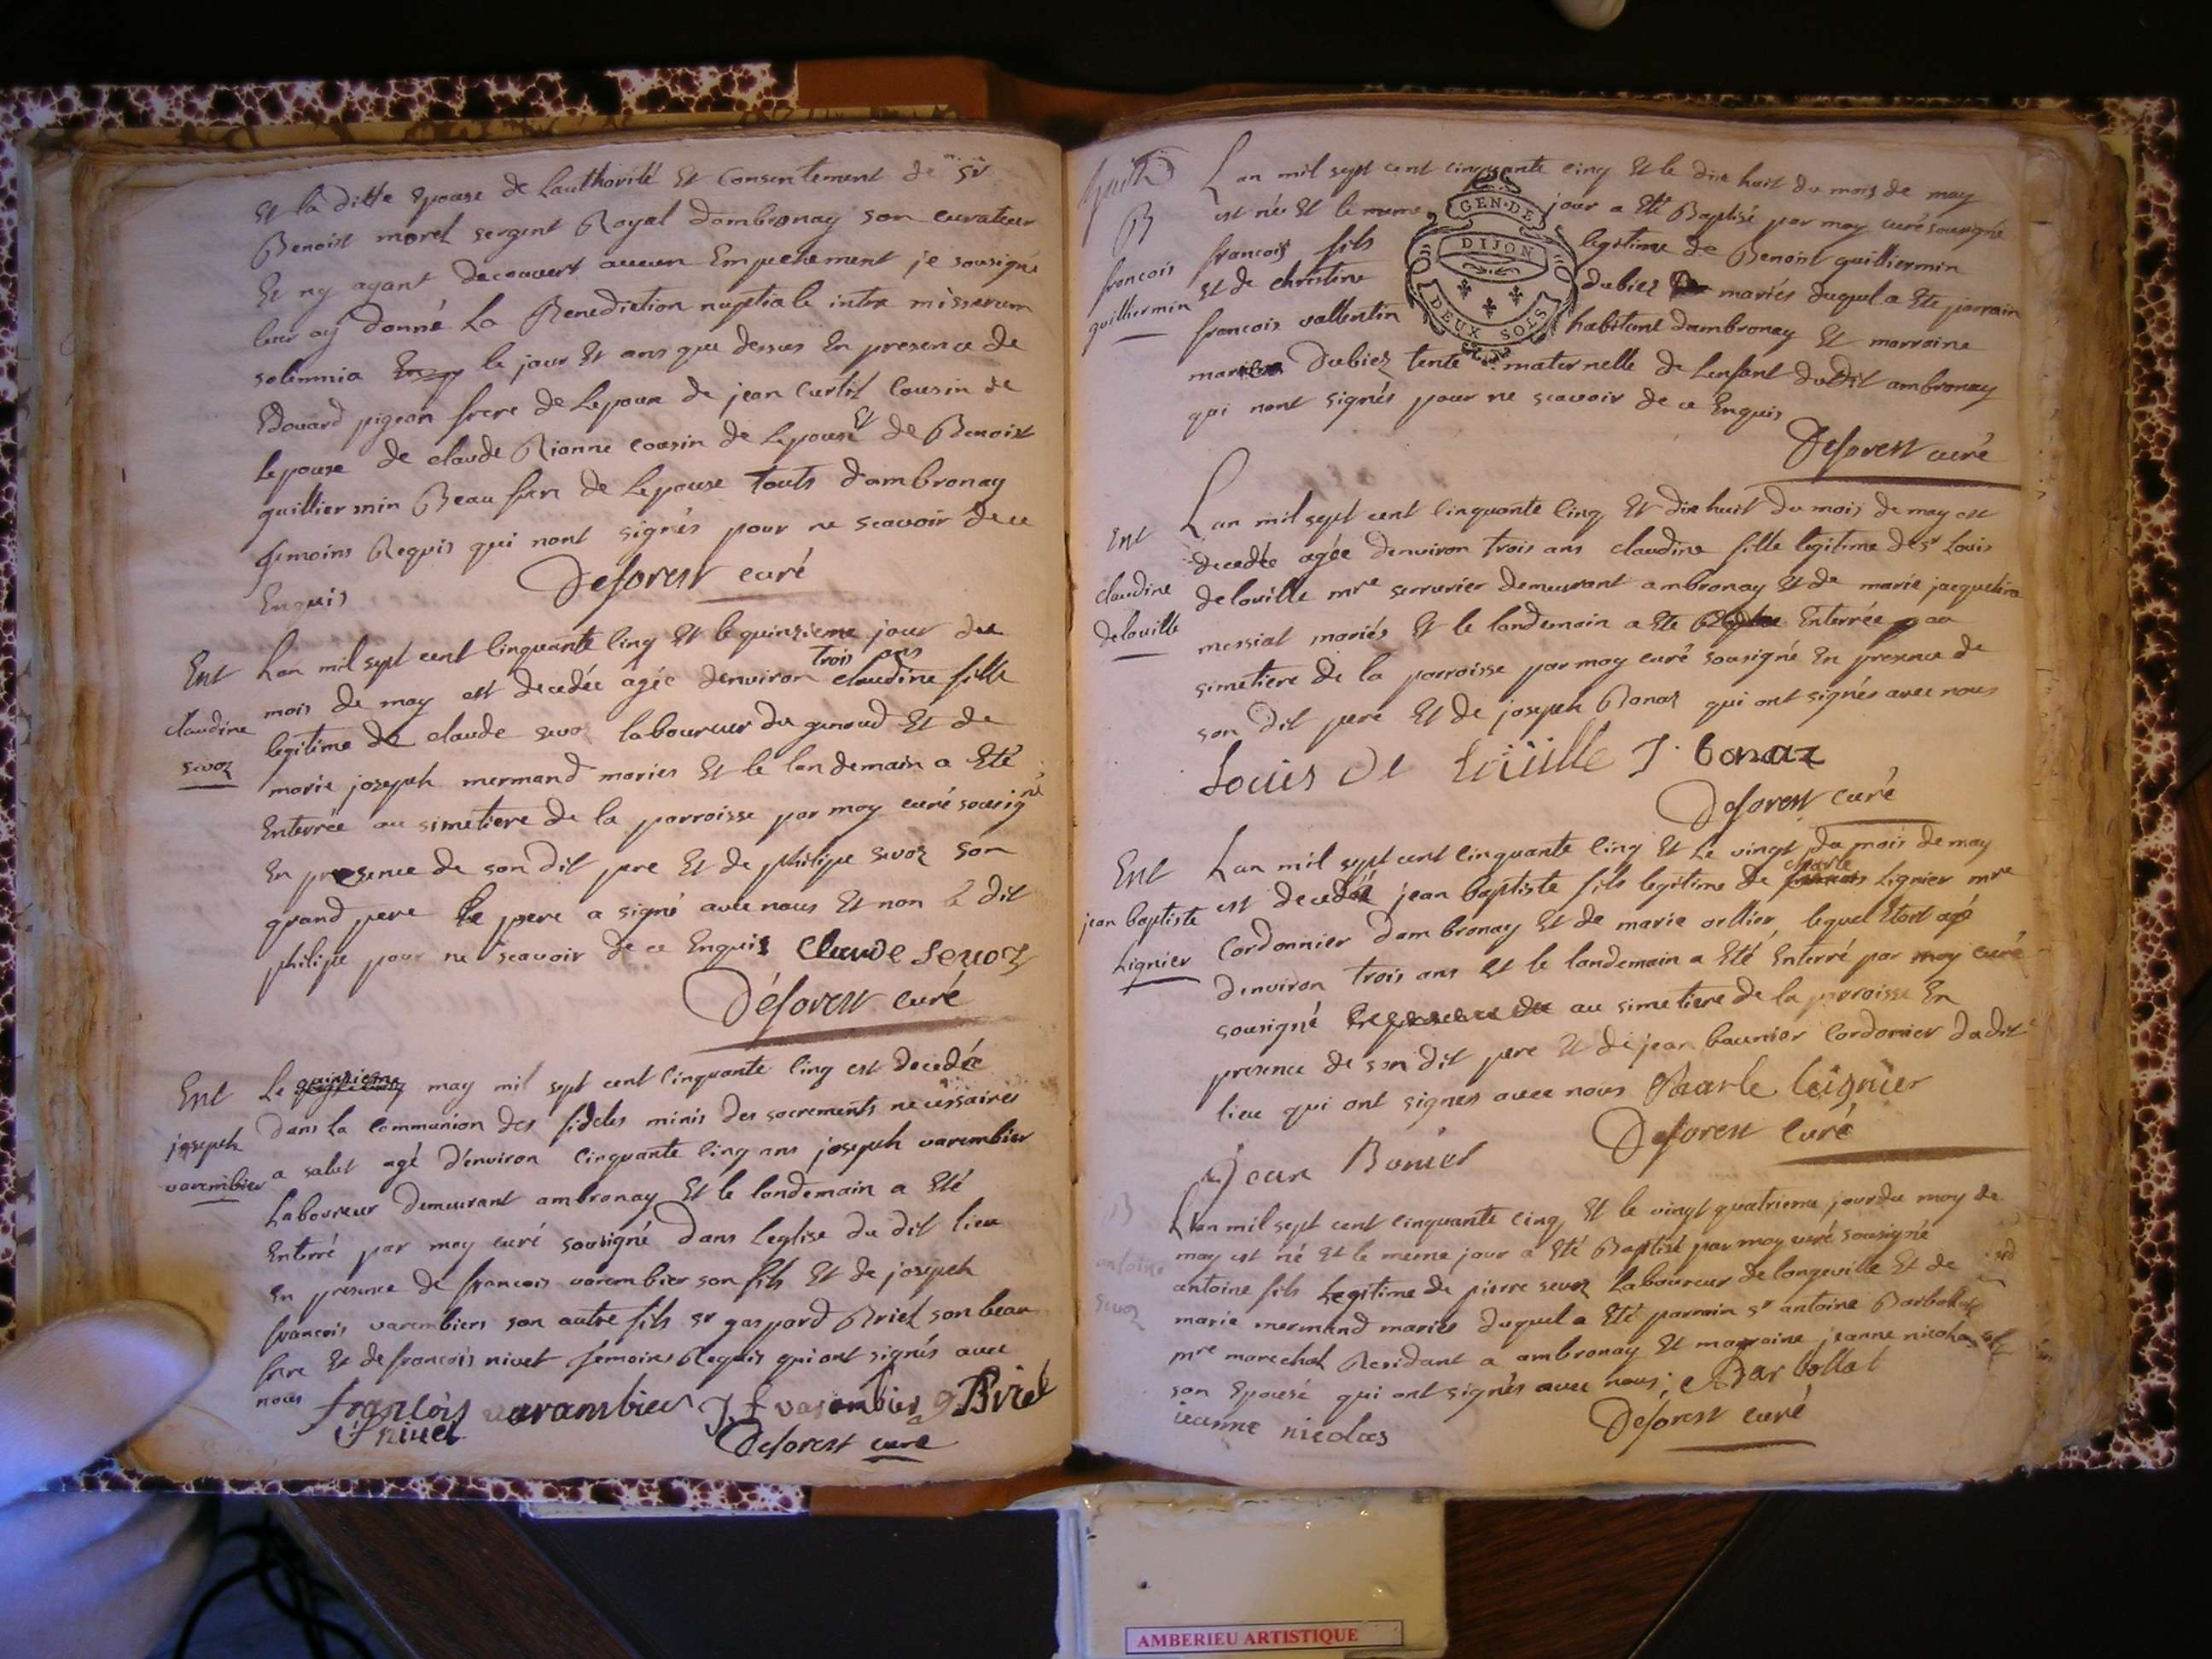 Et la ditte Epouse de Lauthorité Et Consentement de Sr
Benoist morel sergent Royal dambronay son curateur
Et ny ayant decouvert aucun Empechement je sousigné
leur ay donné La Benediction nuptiale intra missarum
solemnia le jour Et ans que dessus En presence de
Edouard pigeon frere de Lepoux de jean Curtil Cousin de
Lepouse de claude Rionne cousin de Lepouse Et de Benoist
guilliermin Beau frere de Lepouse touts dambronay
temoins Requis qui nont signés pour ne scavoir de ce
Enquis Deforest curé
Ent
claudine
sevoz
Lan mil sept cent Cinquante Cinq Et le quinzieme jour du
mois de may est decedée agée denviron trois ans claudine fille
legitime de claude sevoz laboureur du genoud Et de
marie joseph mermand maries Et le landemain a Eté
Enterrée au simetiere de la parroisse par moy curé sousigné
En presence de son dit pere Et de philipe sevoz son
grand pere Le pere a signé avec nous Et non le dit
philipe pour ne scavoir de ce Enquis Claude Sevoz
Déforest curé
Ent
joseph
varembier
Le quinzieme may mil sept cent Cinquante Cinq est decedée
dans La Communion des fideles minis des sacrements necessaires
a salut agé d'environ Cinquante Cinq ans joseph varembier
Laboureur demeurant ambronay Et le landemain a Eté
Enterré par moy curé sousigné dans leglise du dit lieu
En presence de francois varembier son fils Et de joseph
francois varembiers son autre fils sr gaspard Briel son beau
frere Et de francois nivet temoins Requis qui ont signés avec
nous françois varambier J f varambier g Briel
f nivet Deforest curé
huit
B
francois
guilliermin
Lan mil sept cent cinquante cinq Et le dix huit du mois de may
est née Et le meme jour a Eté Baptisé par moy curé sousigné
francois fils legitime de Benoist guilliermin
Et de christine dubiez mariés duquel a Ete parrain
francois vallentin habitant dambronay Et marraine
dubiez tente maternelle de Lenfant dudit ambronay
qui nont signés pour ne scavoir de ce Enquis
Deforest curé
GEN·DE
DIJON
DEUX SOLS
Ent
claudine
delouille
Lan mil sept cent Cinquante Cinq Et dix huit du mois de may est
decedée agée denviron trois ans claudine fille legitime de sr Louis
delouille mre serrurier demeurant ambronay Et de marie jacqueline
messiat mariés Et le landemain a Ete Enterrée au
simetiere de la parroisse par moy curé sousigné En presence de
son dit pere Et de joseph Bonaz qui ont signés avec nous
Louis De Loüille J. bonaz
Deforest curé
Ent
jean baptiste
Lignier
Lan mil sept cent Cinquante Cinq Et Le vingt du mois de may
est decedé jean baptiste fils legitime de charle Lignier mre
Cordonnier dambronay Et de marie orllier, lequel Etoit agé
denviron trois ans Et le landemain a Eté Enterré par moy curé
sousigné au simetiere de la parroisse En
presence de son dit pere Et de jean baunier Cordonier dudit
lieu qui ont signes avec nous Charle leignier
Jean Bonier Deforest Curé
B
antoine
sevoz
Lan mil sept cent Cinquante Cinq Et le vingt quatrieme jour du moy de
may est né Et le meme jour a Eté Baptisé par moy curé sousigné
antoine fils Legitime de pierre sevoz Laboureur de longeville Et de
marie mermand mariés duquel a Eté parrain sr antoine Barbollat
mre marechal Residant a ambronay Et marraine jeanne nicolas
son Epouse qui ont signés avec nous; Barbollat
jeanne nicolas Deforest curé
AMBERIEU ARTISTIQUE